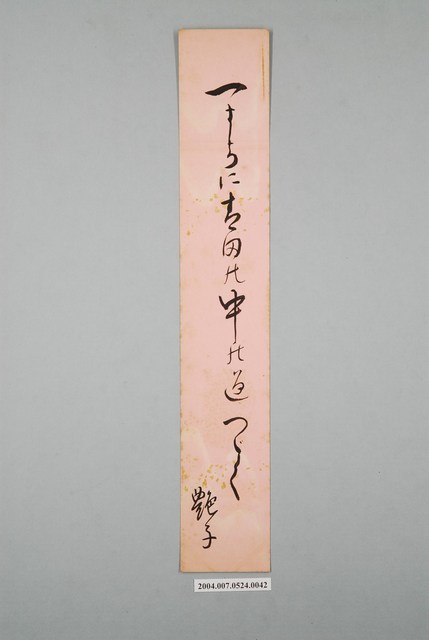 一すぢに青田の中の道つゞく
艶子
2004.007.0524.0042